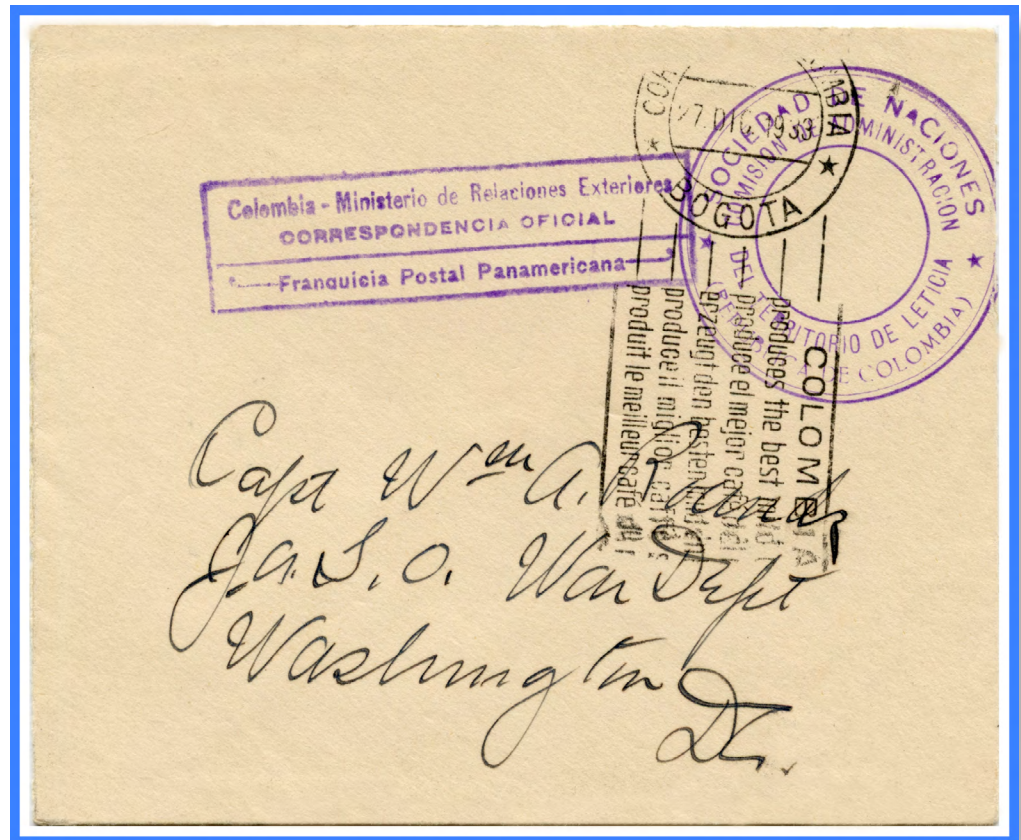 Colombia - Ministerio de Relaciones Exteriores
CORRESPONDENCIA OFICIAL
Franquicia Postal Panamericana
DIC 1933
BOGOTA
SOCIEDAD DE NACIONES
COMISION DE ADMINISTRACION
DEL TERRITORIO DE LETICIA
(REPUBLICA DE COLOMBIA)
COLOMBIA
produces the best mild
produce el mejor café
erzeugt den besten
produce il miglior caffe
produit le meilleur café du
Capt Wm A.
War Dept
Washington
D.C.